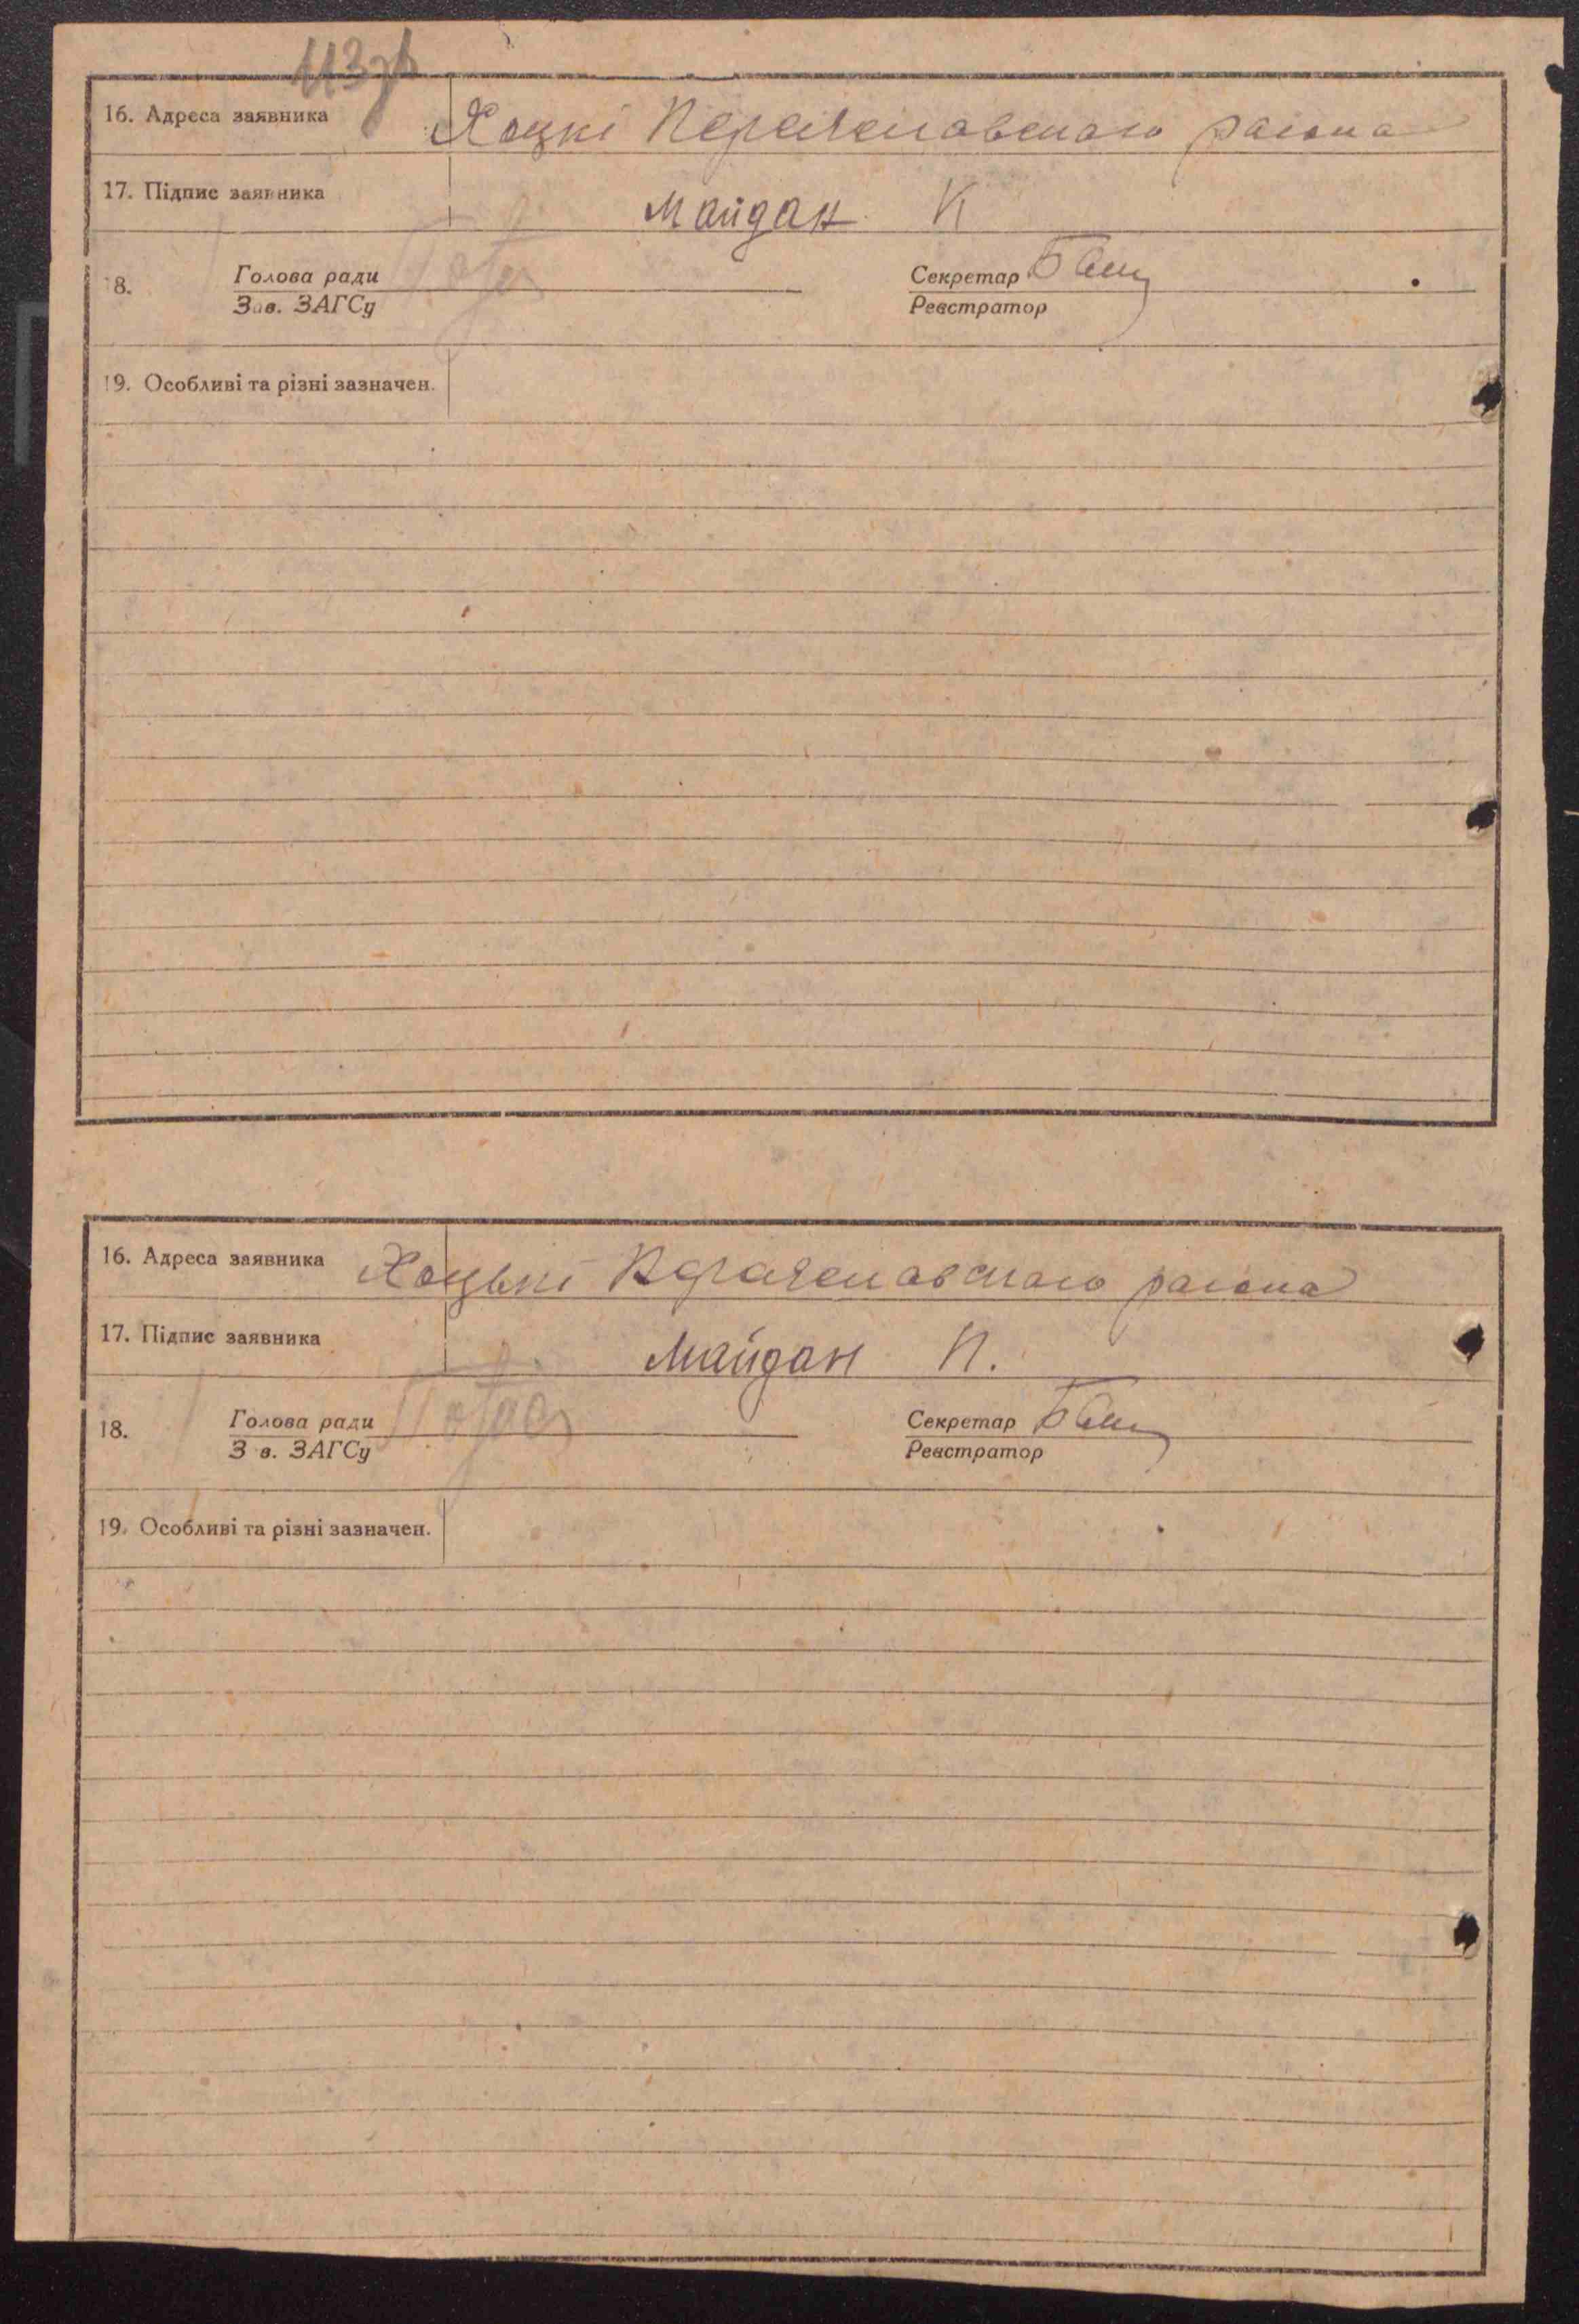 113зв
16. Адреса заявника Хоцкі Переяславського району
17. Підпис заявника Майдан К
18. Голова ради Секретар
Зав. ЗАГСу Реєстратор
19. Особливі та різні зазначен.
16. Адреса заявника Хоцькі района
17. Підпис заявника Майдан П.
18. Голова ради Секретар
З в. ЗАГСу Реєстратор
19. Особливі та різні зазначен.